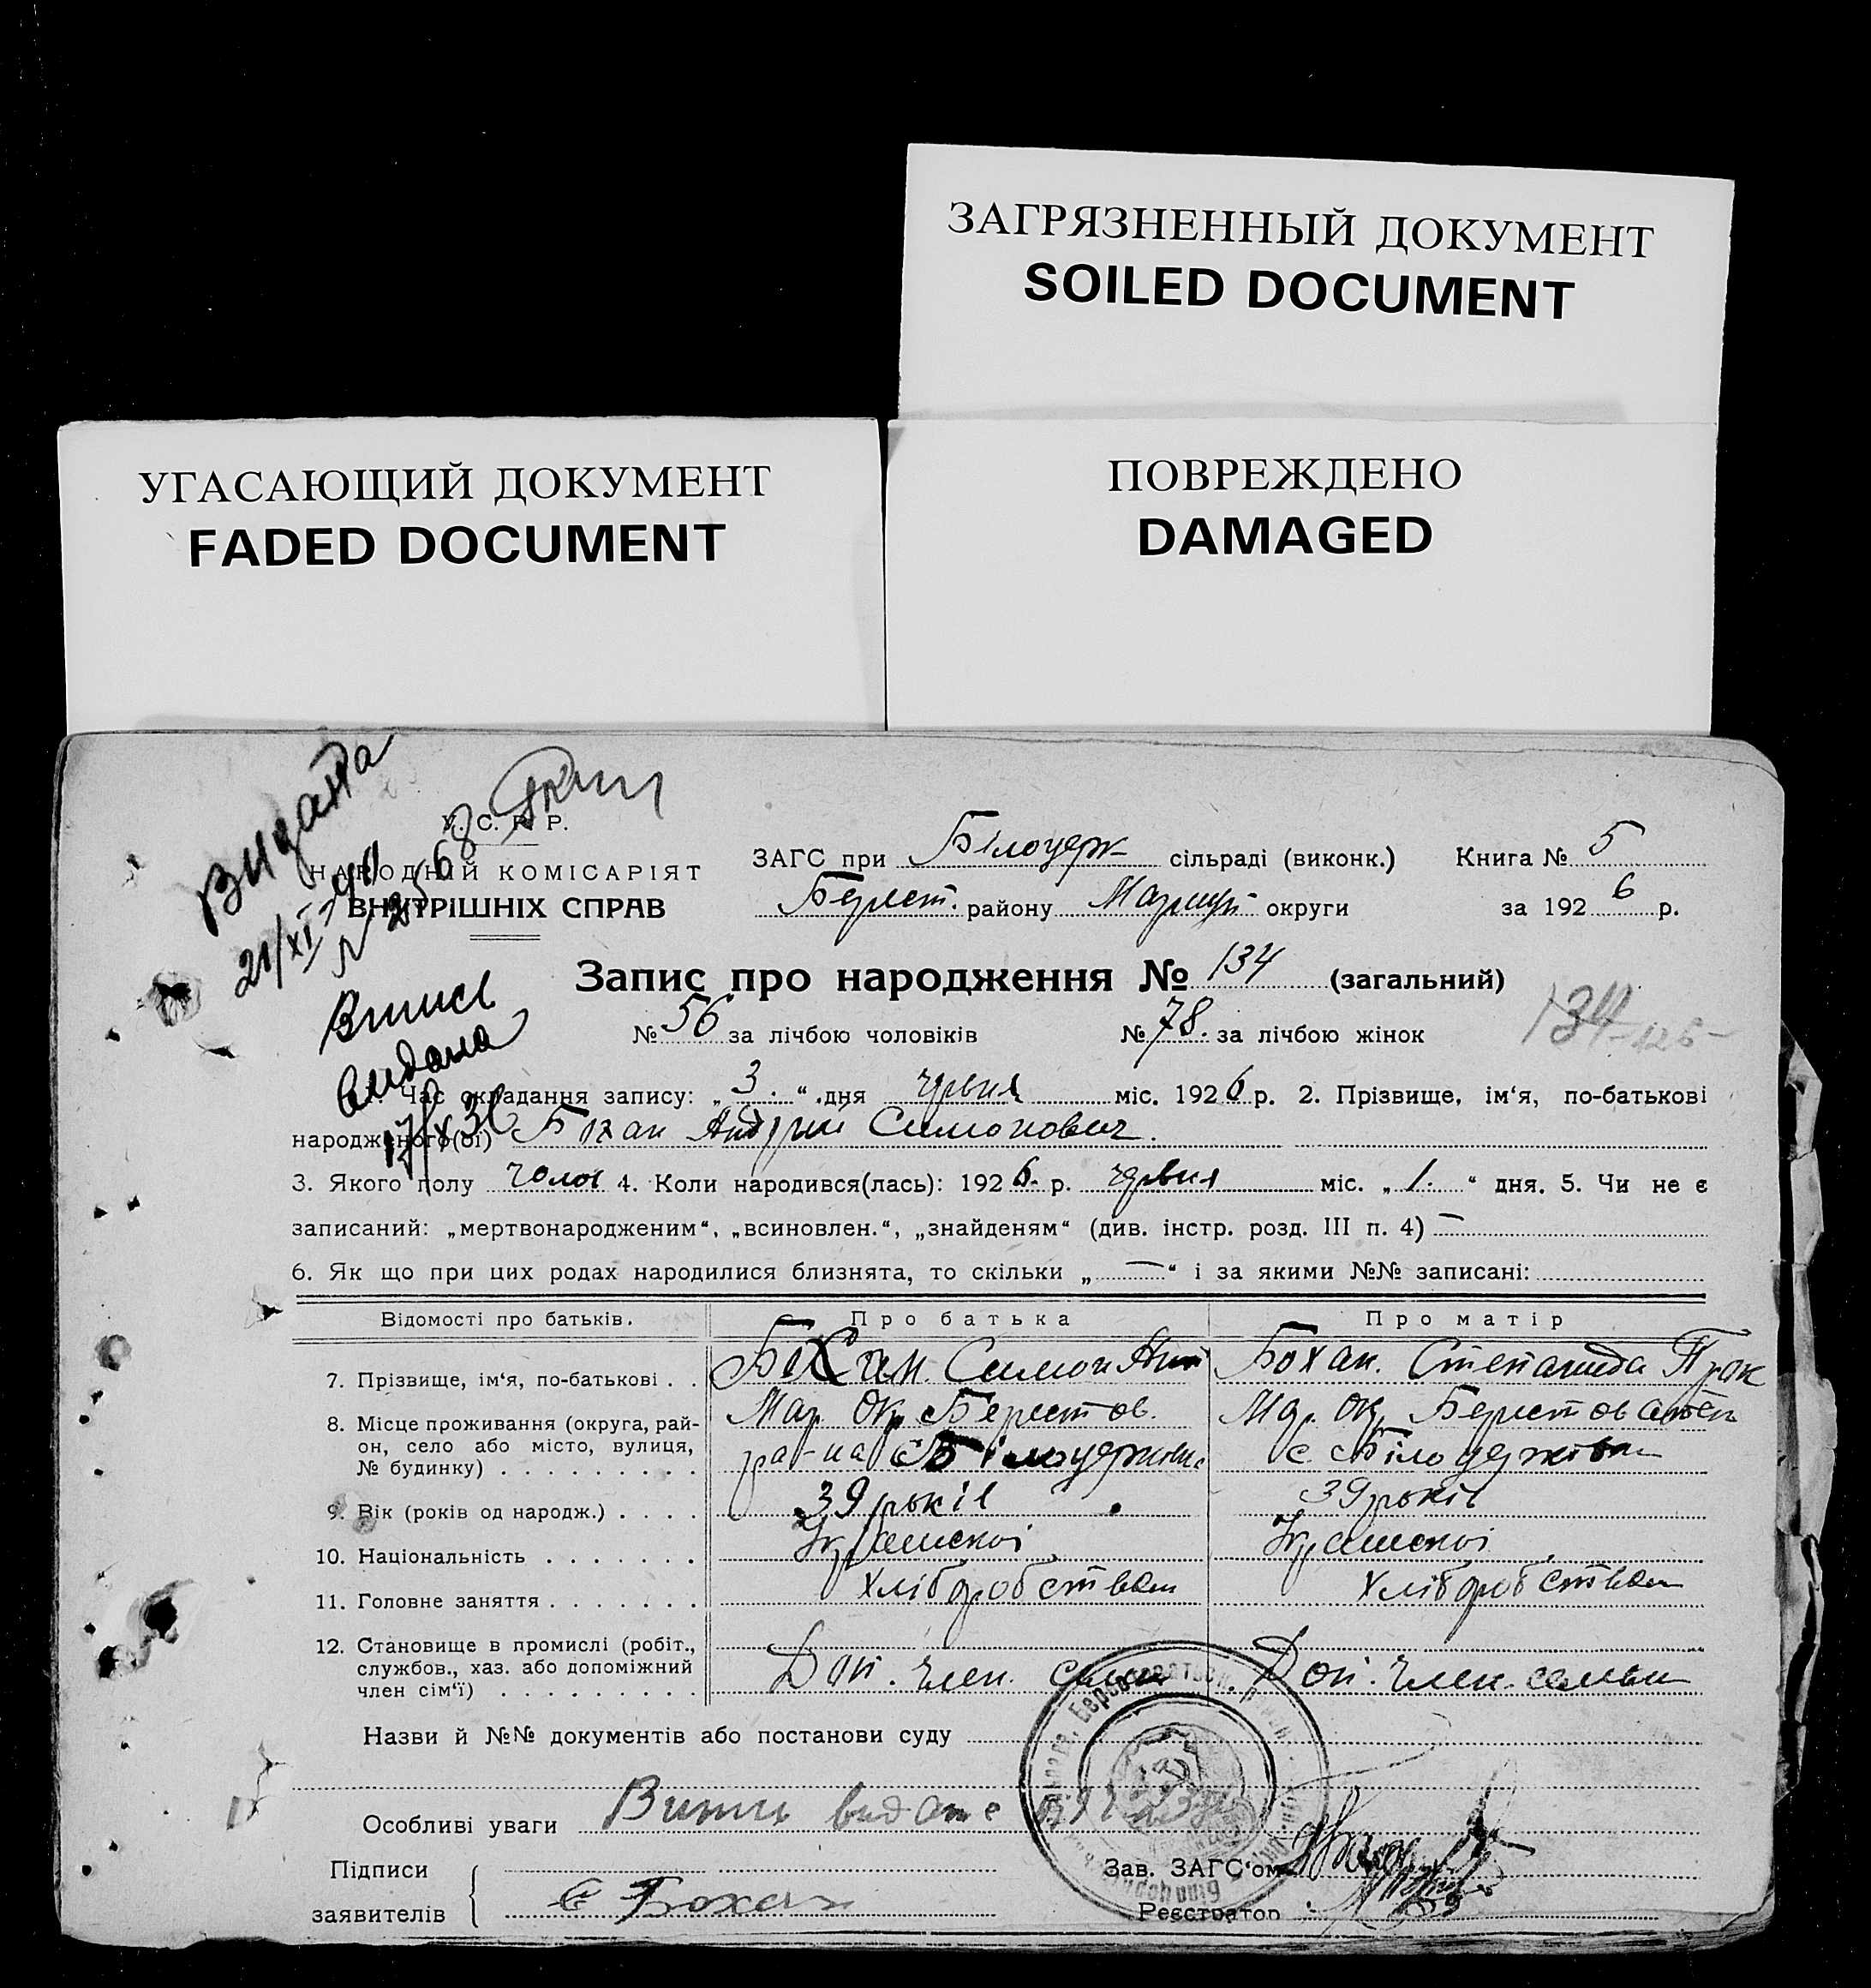 ЗАГРЯЗНЕННЫЙ ДОКУМЕНТ
SOILED DOCUMENT
УГАСАЮЩИЙ ДОКУМЕНТ
FADED DOCUMENT
ПОВРЕЖДЕНО
DAMAGED
Видана
21/XI
№ 2568
Випись
видана
17/X 30
У. С. Р. Р.
НАРОДНІЙ КОМІСАРІЯТ
ВНУТРІШНІХ СПРАВ
ЗАГС при Білоцерк сільраді (виконк.) Книга № 5
Берест. району Маріуп округи за 1926 р.
Запис про народження № 134 (загальний)
№ 56 за лічбою чоловіків № 78. за лічбою жінок
134-125-
1. Час складання запису: „3.“ дня червня міс. 1926 р. 2. Прізвище, ім‘я, по-батькові
народженого(ої) Бохан Андрій Симонович.
3. Якого полу чолов 4. Коли народився(лась): 1926. р. червня міс. „1.“ дня. 5. Чи не є
записаний: „мертвонародженим“, „всиновлен.“, „знайденям“ (див. інстр. розд. III п. 4) —
6. Як що при цих родах народилися близнята, то скільки „—“ і за якими №№ записані:
Відомості про батьків. Про батька Про матір
7. Прізвище, ім‘я, по-батькові . . Бохан. Симон Ант Бохан. Степанида Прок
8. Місце проживання (округа, рай- Мар. Окр. Берестов. Мар. Окр. Берестов
он, село або місто, вулиця, ра-на с Білоцерківка с. Білоцерківки
№ будинку) . . . . . . . . .
9. Вік (років од народж.) . . . . 39 років 39 років
10. Національність . . . . . . . Українскої Українскої
11. Головне заняття . . . . . . . хліборобством хліборобством
12. Становище в промислі (робіт.,
службов., хаз. або допоміжний Доп. член. семьи Доп. член. семьи
член сім‘ї) . . . . . . . . .
Назви й №№ документів або постанови суду
Особливі уваги Випись видане
Підписи
заявителів Є Бохан
Зав. ЗАГС‘ом
Реєстратор